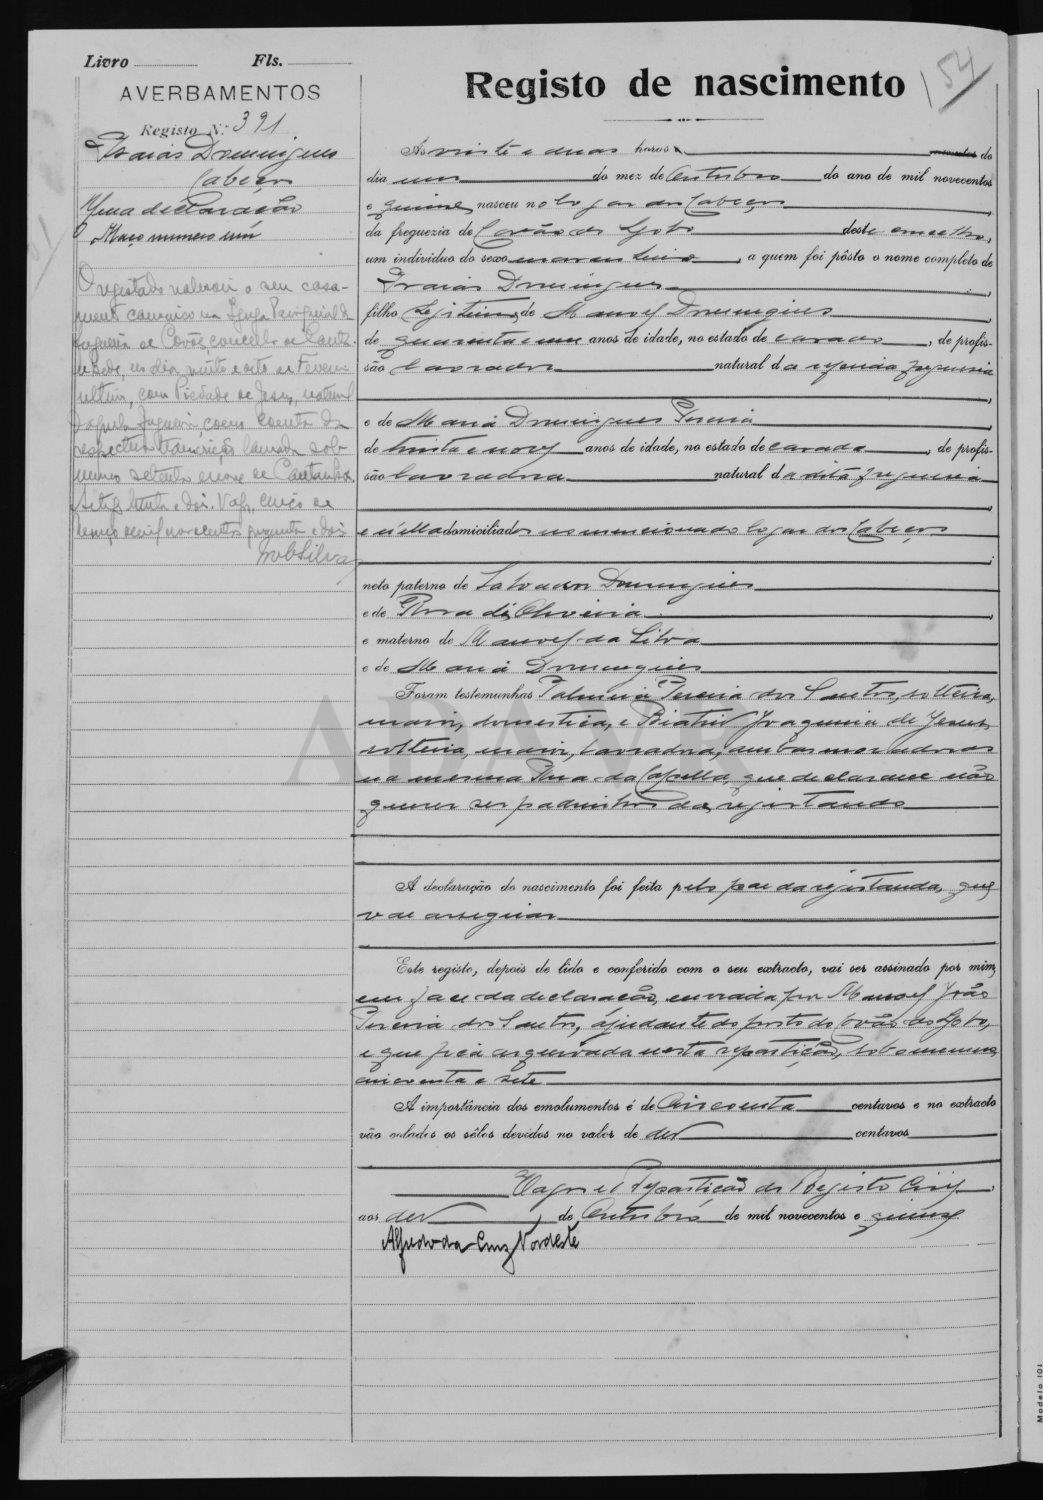 Livro Fls.
AVERBAMENTOS
Registo N.º 391
Isaias Domingues
Cabeço
Uma declaração
Maço numero um
O registado celebrou o seu casa-
mento canonico na Igreja Paroquial da
freguesia de Covões concelho de Canta-
nhede, no dia vinte e oito de Feverei-
ro ultimo, com Piedade de Jesus, natural
daquela freguesia, como consta da
respectiva transcrição lavrada sob
numero setenta de Cantanhede.
cinco de
março de mil novecentos quarenta e dois
Silva
Registo de nascimento
154
As vinte e duas horas do
dia um do mez de Outubro do ano de mil novecentos
e quinze nasceu no logar do Cabeço
da freguezia de Covão do Lobo deste concelho,
um individuo do sexo masculino, a quem foi pôsto o nome completo de
Isaias Domingues
filho legitimo de Manoel Domingues
de quarenta e um anos de idade, no estado de casado, de profis-
são lavrador natural da referida freguesia
e de Maria Domingues Pereira
de trinta e nove anos de idade, no estado de casada, de profis-
são lavradora natural da dita freguesia
e domiciliados no mencionado logar do Cabeço
neto paterno de Salvador Domingues
e de Rosa de Oliveira
e materno de Manoel da Silva
e de Maria Domingues
Foram testemunhas Palmira Pereira dos Santos, solteira,
maior, domestica, e Beatriz Joaquina de Jesus,
solteira, maior, lavradora, ambas moradoras
na mesma Rua da Capella, que declararam não
querer ser padrinhos do registando
A declaração do nascimento foi feita pelo pae do registando, que
vae assignar
Este registo, depois de lido e conferido com o seu extracto, vai ser assinado por mim,
em face da declaração, enviada por Manoel João
Pereira dos Santos, ajudante do posto do Covão do Lobo,
e que fica arquivada nesta repartição, sob o numero
cincoenta e sete
A importância dos emolumentos é de Cincoenta centavos e no extracto
vão colados os sêlos devidos no valor de dez centavos
Vagos e Repartição do Registo Civil,
aos dez de Outubro de mil novecentos e quinze
Alfredo da Cruz Nordeste
ADAVR
Modelo 101